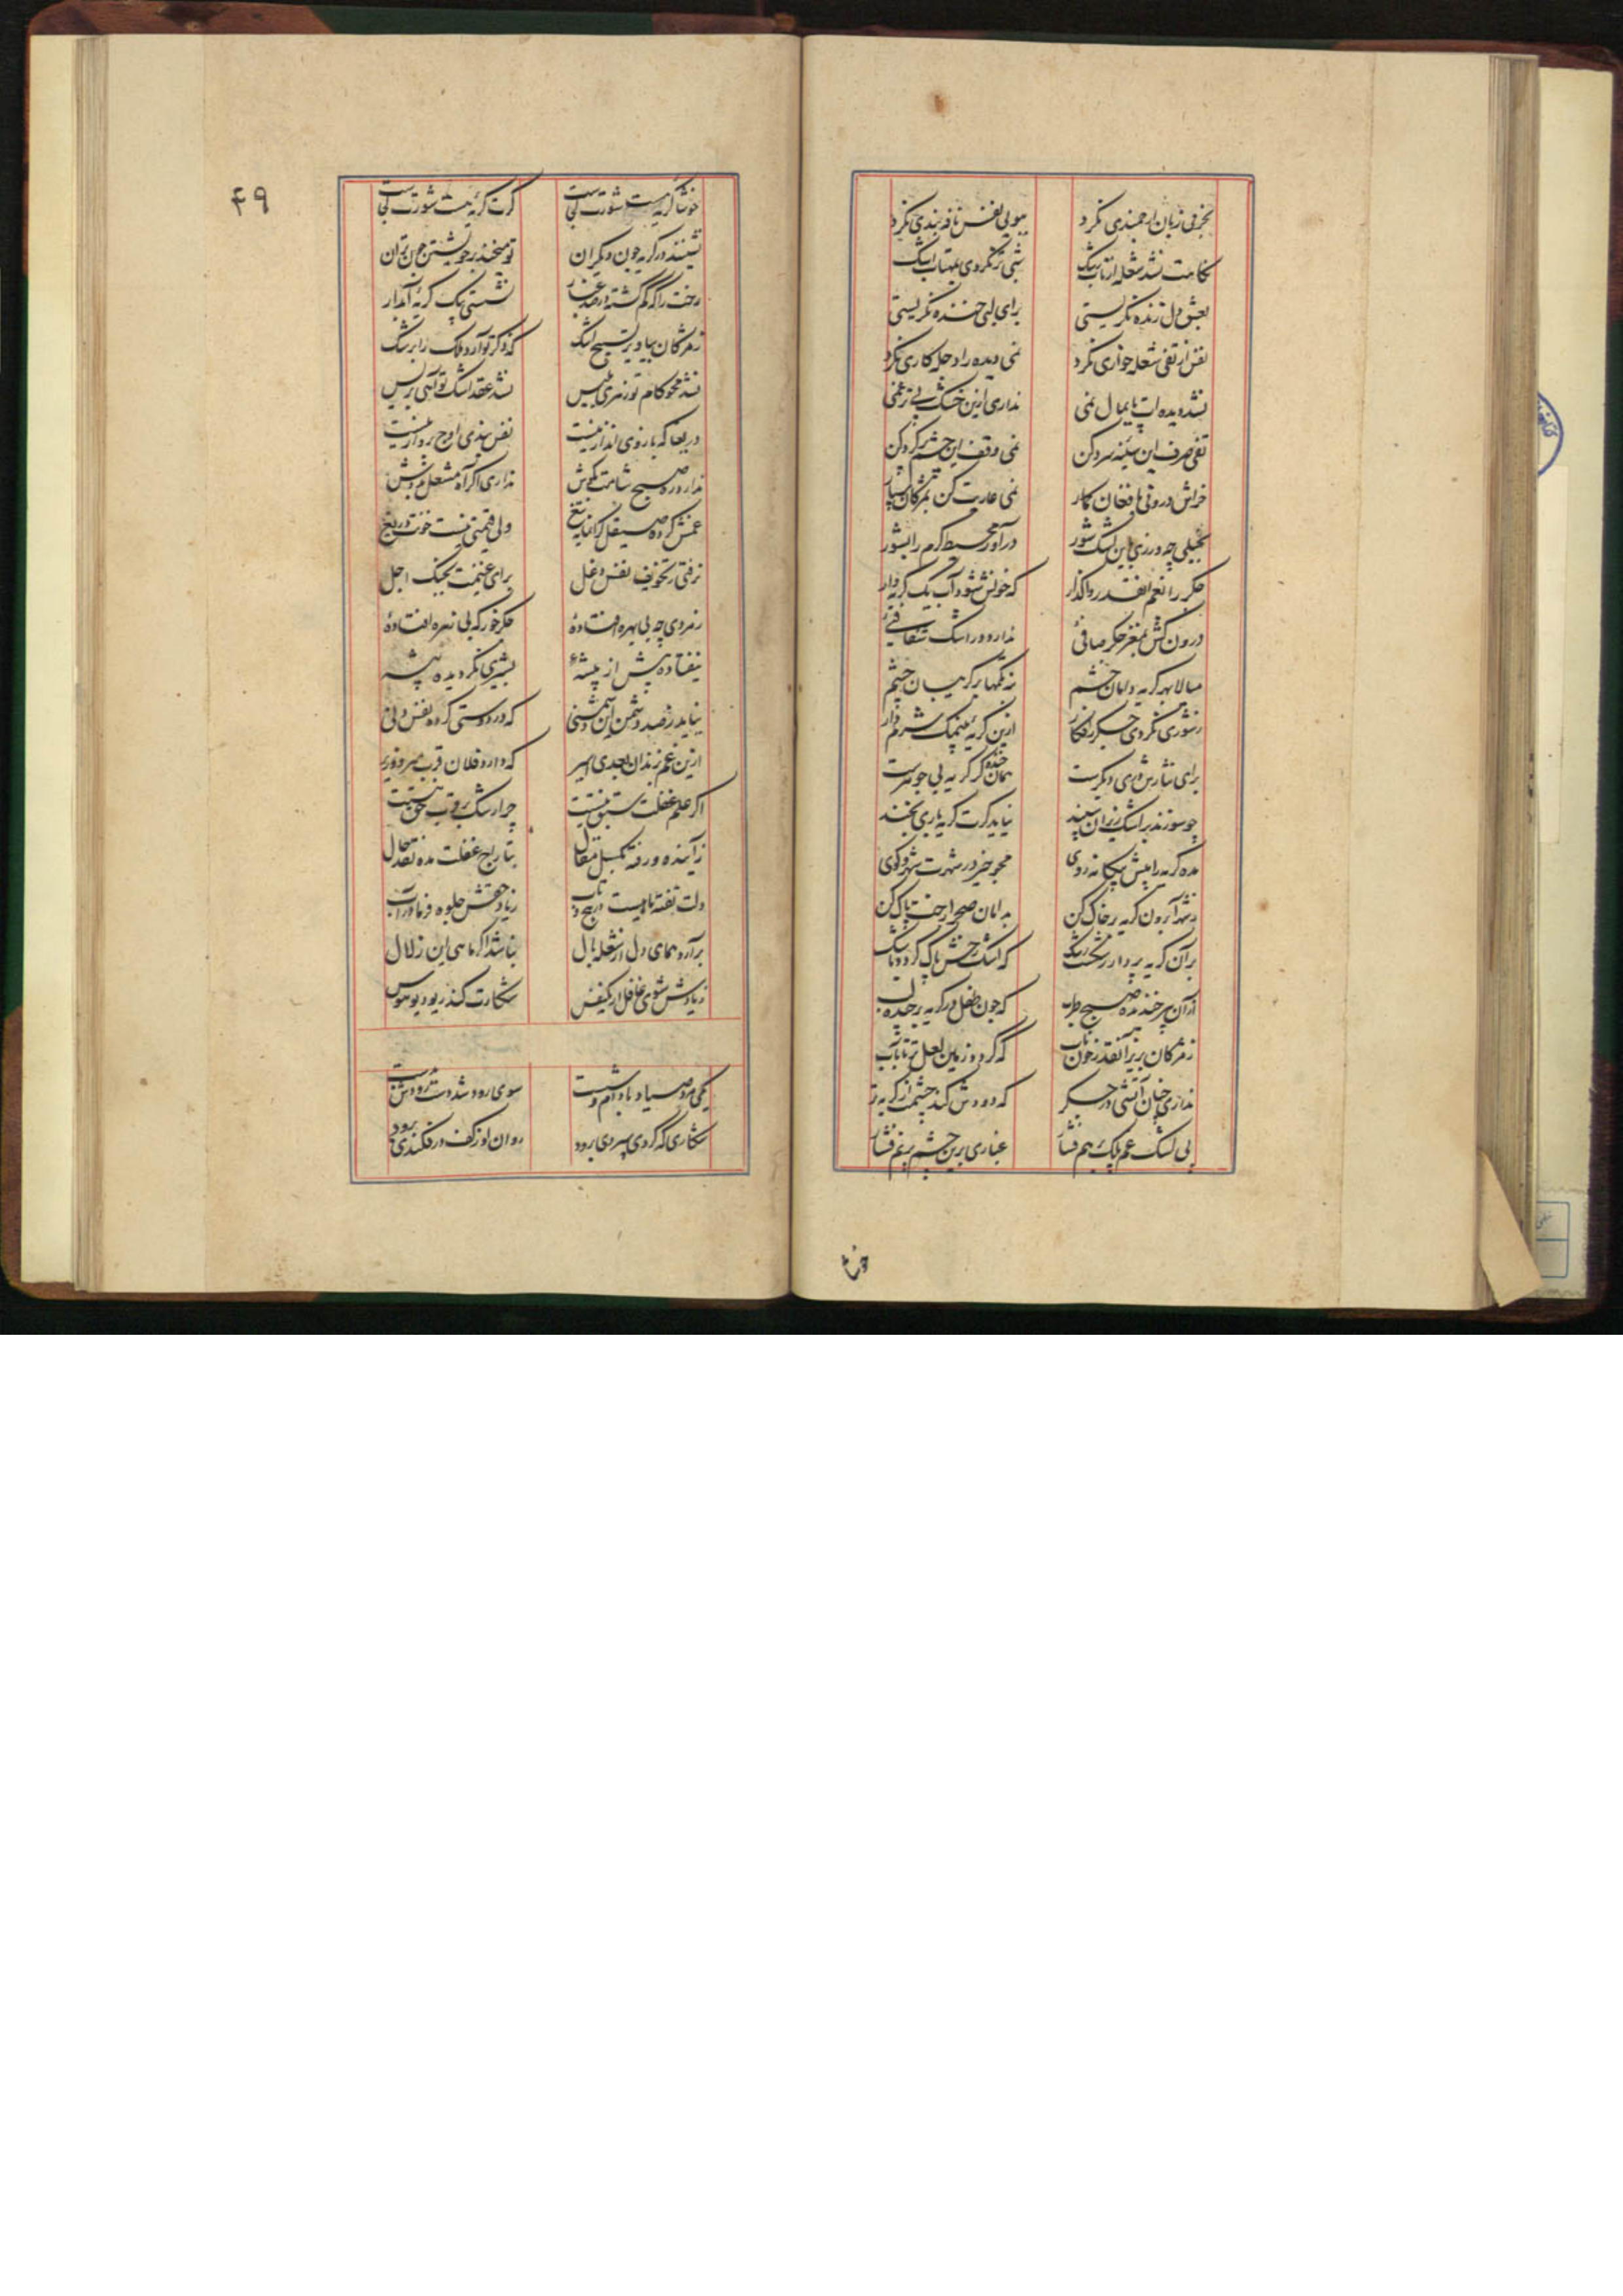 بحرفی زبان ارجمندی نکرد ببویی نفس نافه بندی نکرد
کامت نشد شعله از تاب اشک شبی تر نکردی بمهتاب اشک
بعشق دل زنده نگریستی برای لب خنده نگریستی
نفس از تفی شعله خواری نکرد نمی دیده را دجله کاری نکرد
نشد دیده ات پایمال نمی نداری ازین خشک بی تر غمی
تفی صرف این سینه سرد کن نمی وقف این چشم بر گرد کن
خراش درونی بافغان بکار نمی عاریت کن بمژگان سپار
بخیلی چه ورزی باین اشک شور درآور محیط کرم را بشور
جگر را بغم آنقدر واگذار که خونش شود آب یک گریه وار
درون کش بمغز جگر صافی ندارد در اشک شفافی
میالا بهر گریه دامان چشم نه تکمها بر گریبان چشم
بشوری نکردی جگر را فکار ازین گریه بی نمک شرم دار
برای نثارش دری دیگرست همان خنده گر گریه بی جوهرست
چو سوزند بر اشک ریزان سپند نباید گرت گریه باری بخند
مده گریه را پیش بیگانه روی مجو خیز در شهرت شهر و کوی
ز شهر آ برون گریه بر خاک کن بدامان صحرا رخت پاک کن
بر آن گریه بردار رنگ که اشک رخش پاک گردد باشک
از آن پیر خنده صبح طرب که چون طفل در گریه برچیده لب
ز مژگان بریز آنقدر خون ناب که گردد زمین لعل تر تا بآب
نداری چنان آتشی در جگر که دودش کند چشمت از گریه تر
پی اشک غم پلک بر هم فشار غباری برین چشم بی نم فشار
خوشا
۴۹
خوشا گریه مست شورت کجاست گرت گریه نیست شورت کجاست
نشینند در گریه چون دیگران تو میخند بر خویشتن چون تران
رخت را که گم گشته در صد غبار نشستی بیک گریه آبدار
ز مژگان بیاویز تسبیح اشک که ذکر تو آرد ملک را برشک
نشد محو کام تو زهری پلیس نشد عقد اشک تو آهی بریس
دریغا که بازوی انداز نیست نفس بندی اوج پرواز نیست
ندارد ره صبح شامت بگوش نداری اگر آه مشعل بدوش
غمش کرده صیقل گرانمایه تیغ ولی قیمتی نیست خونت دریغ
نرفتی بتخویف نفس دغل برای غنیمت بجنگ اجل
ز مردی چه بی بهره افتاده جگرخور که بی زهره افتاده
نیفتاده پیش از پیشه بشیری نگردیده پیشه
نیاید ز صد دشمن این دشمنی که در دوستی کرده نفس دنی
ازین غم بزندان بعدی اسیر که دارد فلان قرب میر و وزیر
اگر علم غفلت سبق نیستت چرا رشک بر قرب حق نیستت
ز آینده و رفته بگسل مقال بتاریخ غفلت مده نقد حال
دلت تفته ماهیست در پیچ و تاب ز یاد حقش جلوه فرما در آب
بر آرد همای دل از شعله بال نباشد اگر ماهی این زلال
ز یادش شوی غافل ار یکنفس شکارت کند ریو دیو هوس
یکی مرد صیاد با دام و شست سوی رود شد دست رودش بدست
شکاری که گردی سپردی برود روان او ز کف در فکندی برود